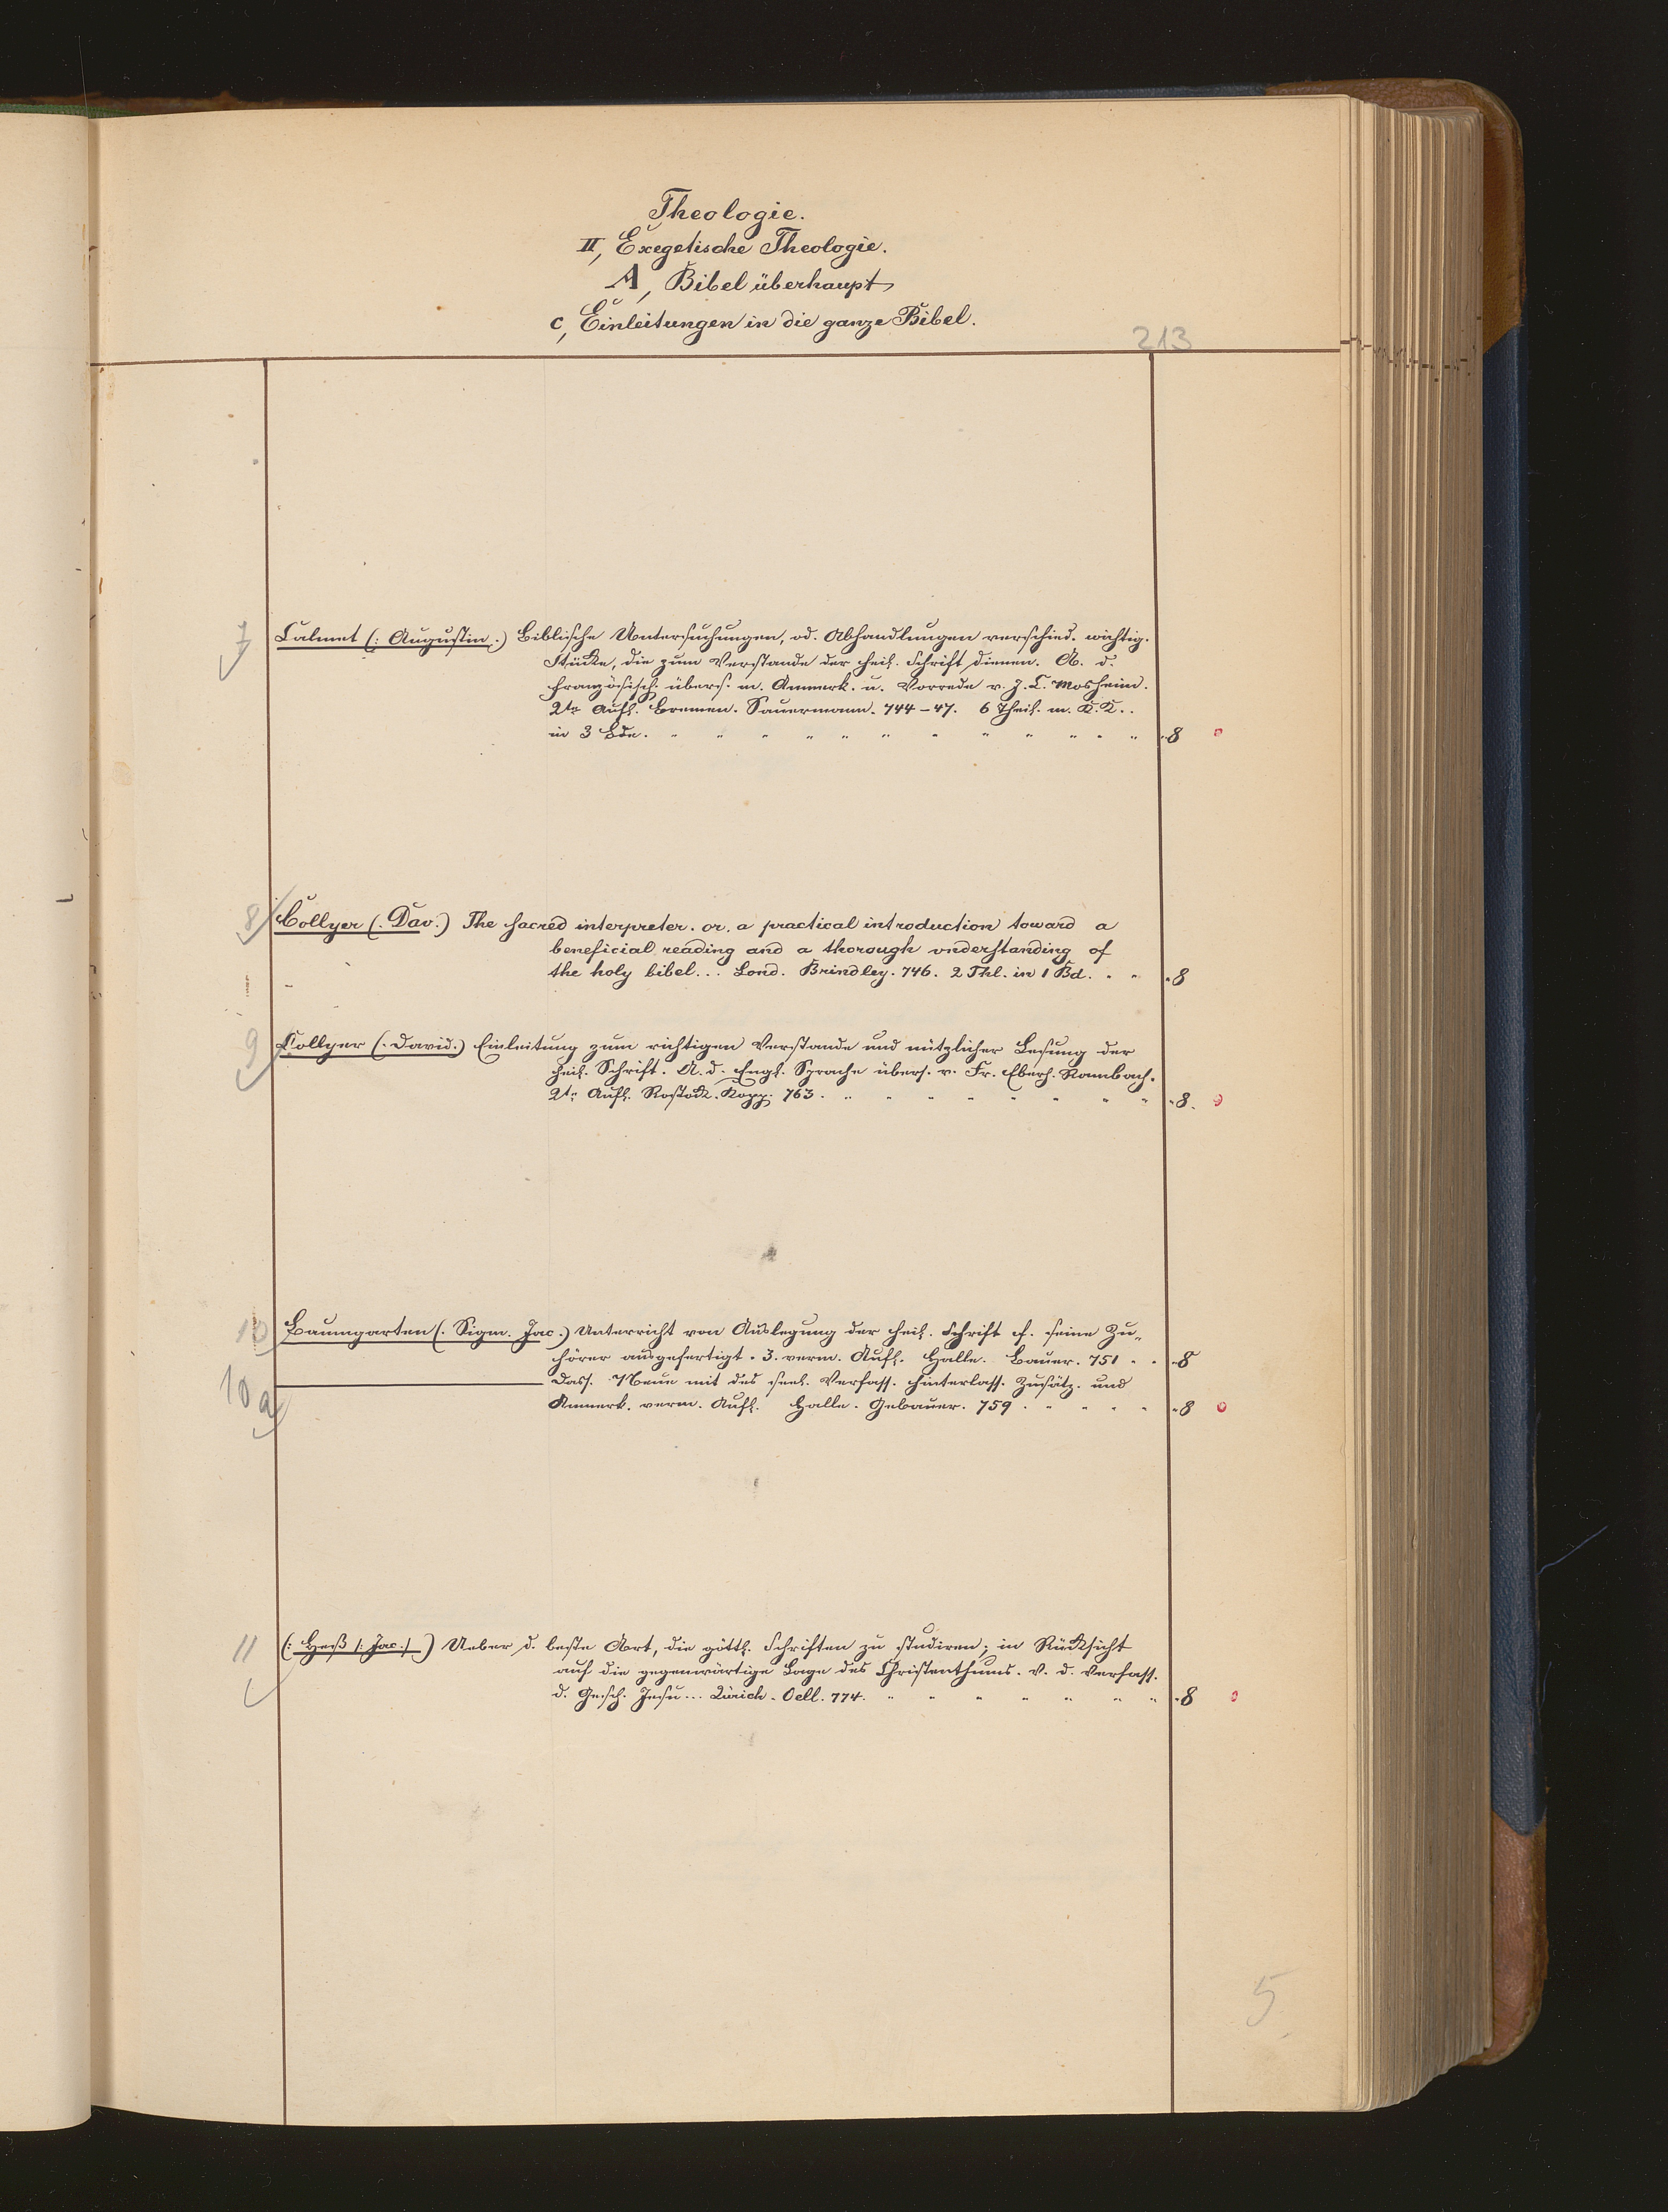 Theologie.
II, Exegetische Theologie.
A, Bibel überhaupt
c, Einleitungen in die ganze Bibel.
213
7 Calmet (: Augustin :) Biblische Untersuchungen, od. Abhandlungen verschied. wichtig.
Stücke, die zum Verstande der heil. Schrift dienen. A. d.
französisch. übers. m. Anmerk. u. Vorrede v. J. L. Mosheim.
2te Aufl. Bremen. Sauermann. 744-47. 6 Theil. m. K.K..
in 3 Bde. " " " " " " " " " " " " "8
8 Collyer (. Dav.) The sacred interpreter. or, a practical introduction toward a
beneficial reading and a thorough vnderstanding of
the holy bibel... Lond. Brindley. 746. 2 Thl. in 1 Bd. " " "8
9 Collyer (. David.) Einleitung zum richtigen Verstande und nützlicher Lesung der
heil. Schrift. A. d. Engl. Sprache übers. v. Fr. Eberh. Rambach.
2te Aufl. Rostock. Kopp. 763. " " " " " " " " "8.
10 Baumgarten (. Sigm. Jac.) Unterricht von Auslegung der heil. Schrift f. seine Zu-
hörer ausgefertigt. 3. verm. Aufl. Halle. Bauer. 751 " " "8
10a Dass. Neue mit des seel. Verfass. hinterlass. Zusätz. und
Anmerk. verm. Aufl. Halle. Gebauer. 759. " " " " "8
11 (: Heß /: Jac./ ) Ueber d. beste Art, die göttl. Schriften zu studiren; in Rücksicht
auf die gegenwärtige Lage des Christenthums. V. d. Verfass.
d. Gesch. Jesu... Zürich. Oell. 774. " " " " " " " "8
5